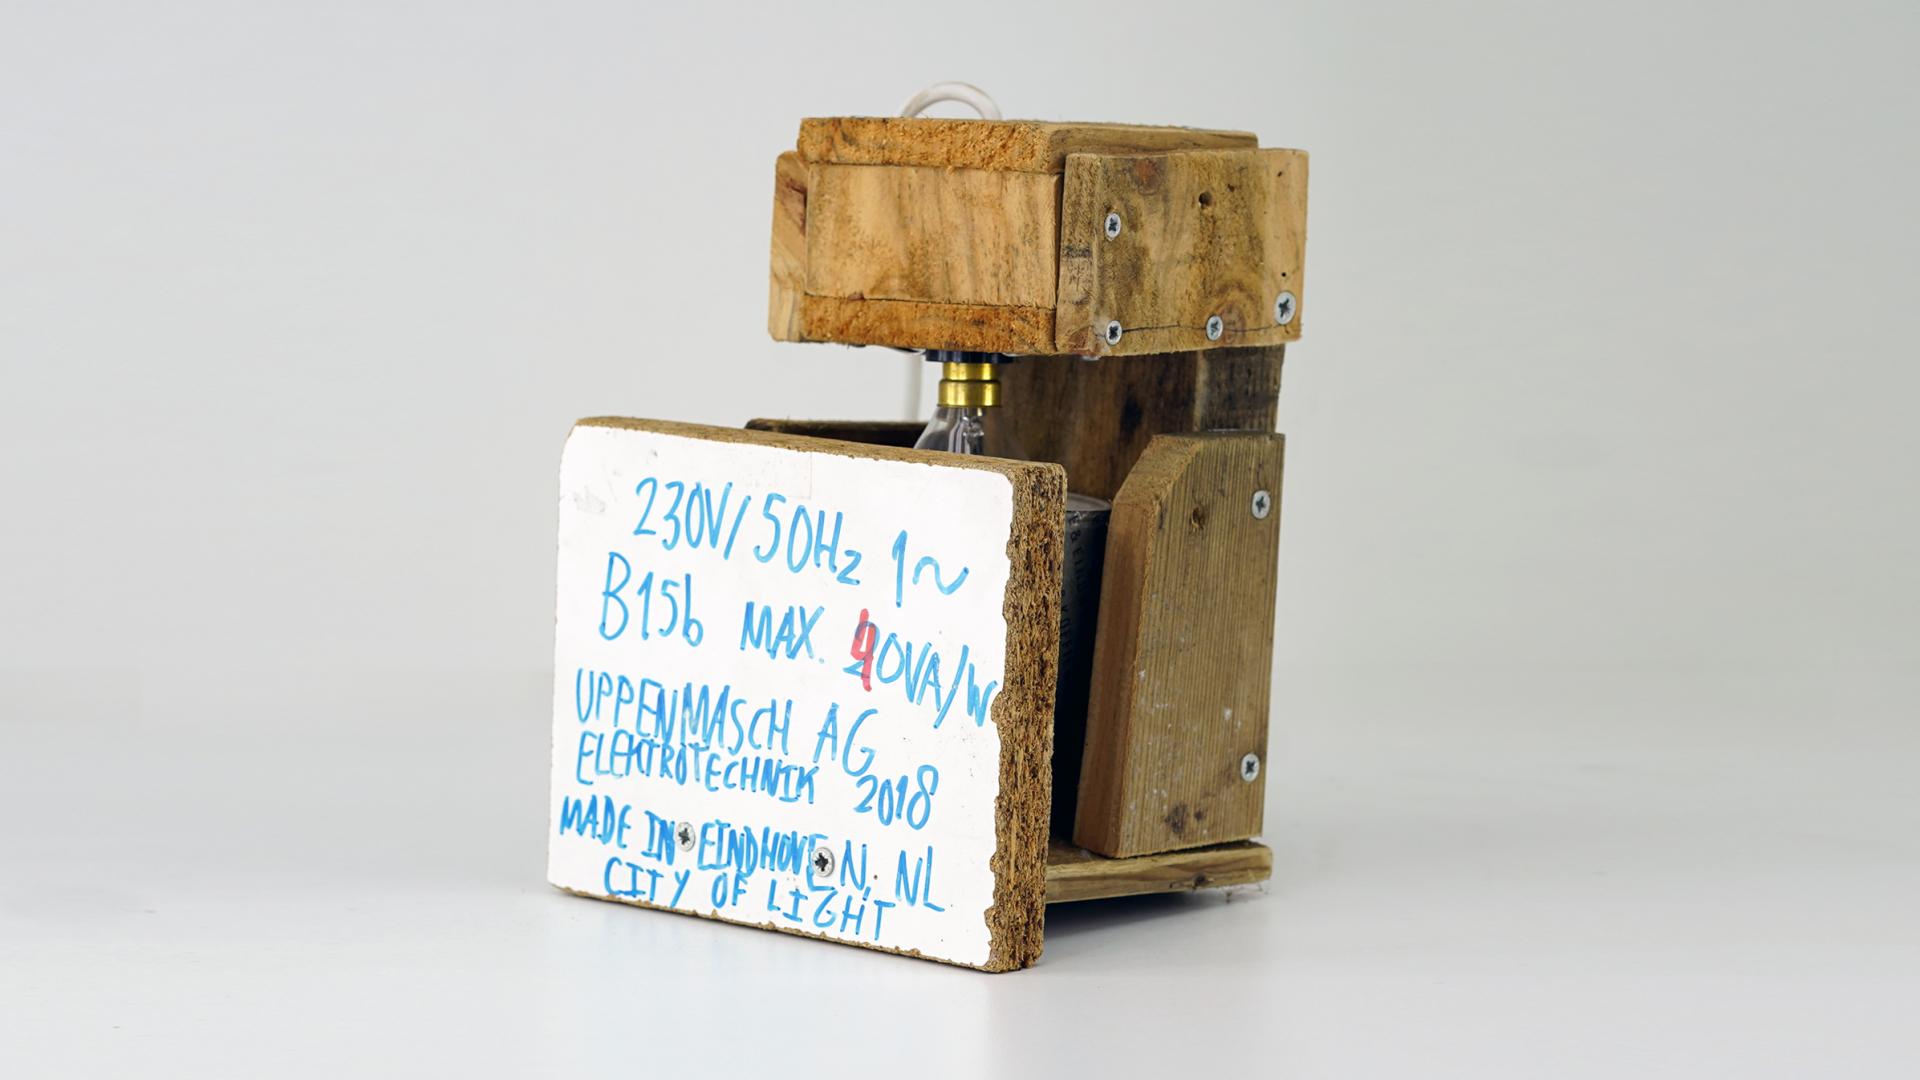 230V/50Hz 1~
B15b MAX. 40VA/W
UPPENMASCH AG
ELEKTROTECHNIK 2018
MADE IN EINDHOVEN, NL
CITY OF LIGHT